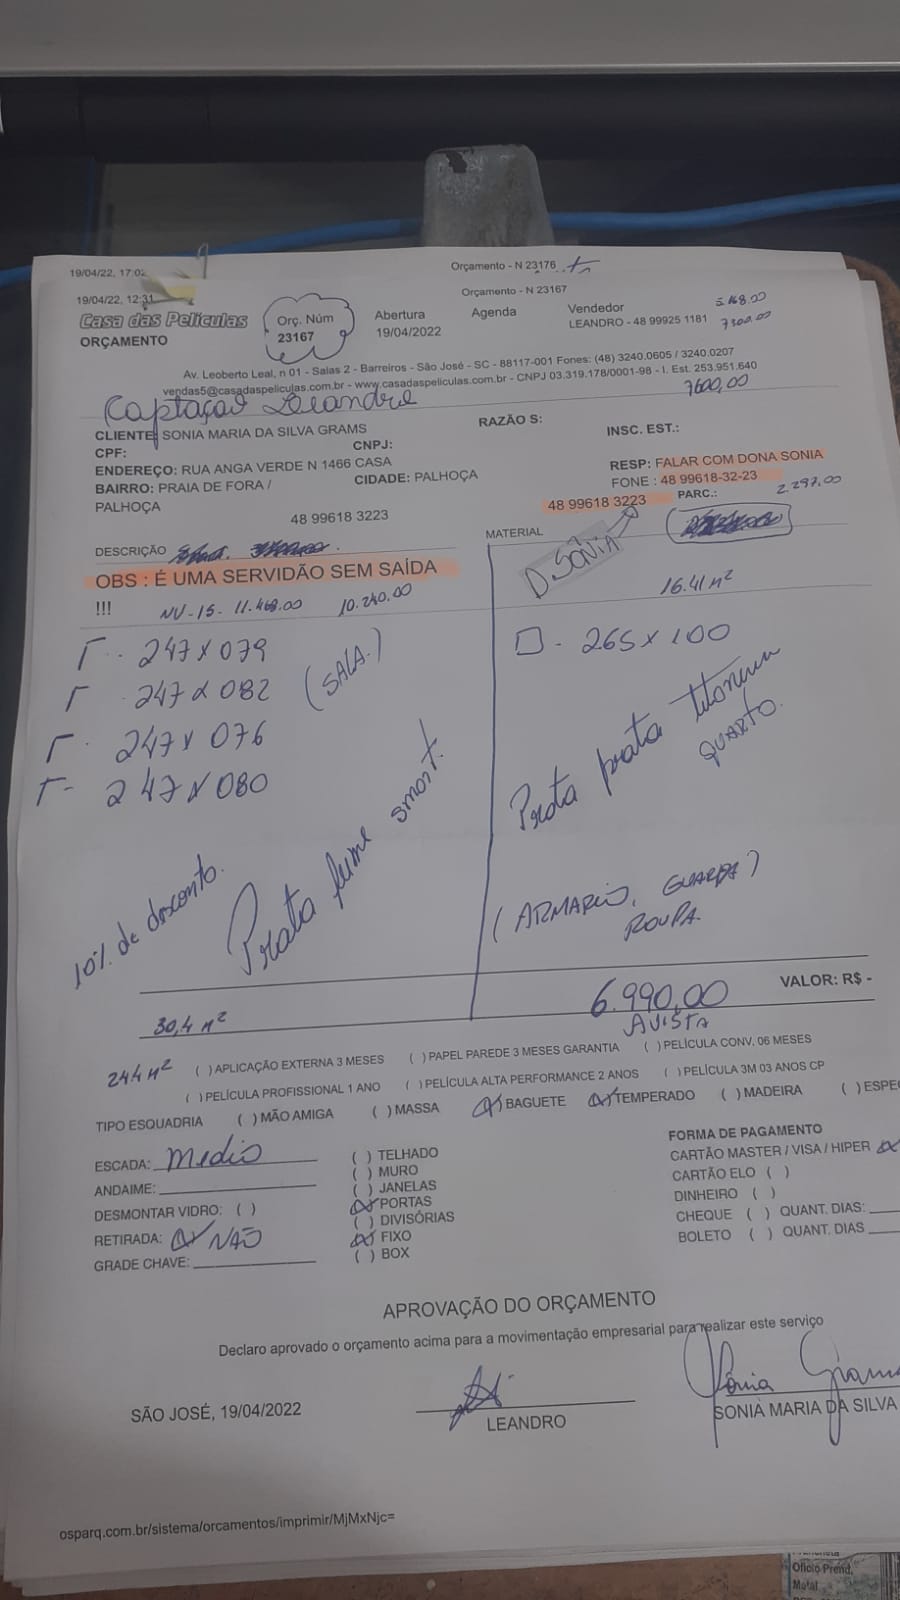 19/04/22, 17:02
Orçamento - N 23176
19/04/22, 12:31
Orçamento - N 23167
Casa das Películas
ORÇAMENTO
Orç. Núm
23167
Abertura
19/04/2022
Agenda
Vendedor
LEANDRO - 48 99925 1181
7300,00
Av. Leoberto Leal, n 01 - Salas 2 - Barreiros - São José - SC - 88117-001 Fones: (48) 3240.0605 / 3240.0207
vendas5@casadaspeliculas.com.br - www.casadaspeliculas.com.br - CNPJ 03.319.178/0001-98 - I. Est. 253.951.640
Captação Leandre
7600,00
CLIENTE: SONIA MARIA DA SILVA GRAMS
RAZÃO S:
INSC. EST.:
CPF:
CNPJ:
ENDEREÇO: RUA ANGA VERDE N 1466 CASA
RESP: FALAR COM DONA SONIA
BAIRRO: PRAIA DE FORA /
PALHOÇA
CIDADE: PALHOÇA
FONE : 48 99618-32-23
48 99618 3223
PARC.:
2.297.00
48 99618 3223
DESCRIÇÃO
MATERIAL
D. SÔNIA
OBS : É UMA SERVIDÃO SEM SAÍDA
!!!
NV-15- 11.468.00 10.240.00
16.41 m²
247 x 079
247 x 082
(SALA.)
247 x 076
247 x 080
265 x 100
Prata prata titanium
QUARTO.
10% de desconto.
Prata fume smart.
(ARMARIO, GUARDA)
ROUPA.
30,4 m²
6.990,00
AVISTA
VALOR: R$ -
244 m²
( ) APLICAÇÃO EXTERNA 3 MESES ( ) PAPEL PAREDE 3 MESES GARANTIA ( ) PELÍCULA CONV. 06 MESES
( ) PELÍCULA PROFISSIONAL 1 ANO ( ) PELÍCULA ALTA PERFORMANCE 2 ANOS ( ) PELÍCULA 3M 03 ANOS CP
TIPO ESQUADRIA ( ) MÃO AMIGA ( ) MASSA (X) BAGUETE (X) TEMPERADO ( ) MADEIRA ( ) ESPE
ESCADA: Medio
ANDAIME:
DESMONTAR VIDRO: ( )
RETIRADA: (X) NÃO
GRADE CHAVE:
( ) TELHADO
( ) MURO
( ) JANELAS
(X) PORTAS
( ) DIVISÓRIAS
(X) FIXO
( ) BOX
FORMA DE PAGAMENTO
CARTÃO MASTER / VISA / HIPER (X
CARTÃO ELO ( )
DINHEIRO ( )
CHEQUE ( ) QUANT. DIAS:
BOLETO ( ) QUANT. DIAS
APROVAÇÃO DO ORÇAMENTO
Declaro aprovado o orçamento acima para a movimentação empresarial para realizar este serviço
Sônia Grams
SÃO JOSÉ, 19/04/2022
LEANDRO
SONIA MARIA DA SILVA
osparq.com.br/sistema/orcamentos/imprimir/MjMxNjc=
Oficio Prend.
Motal